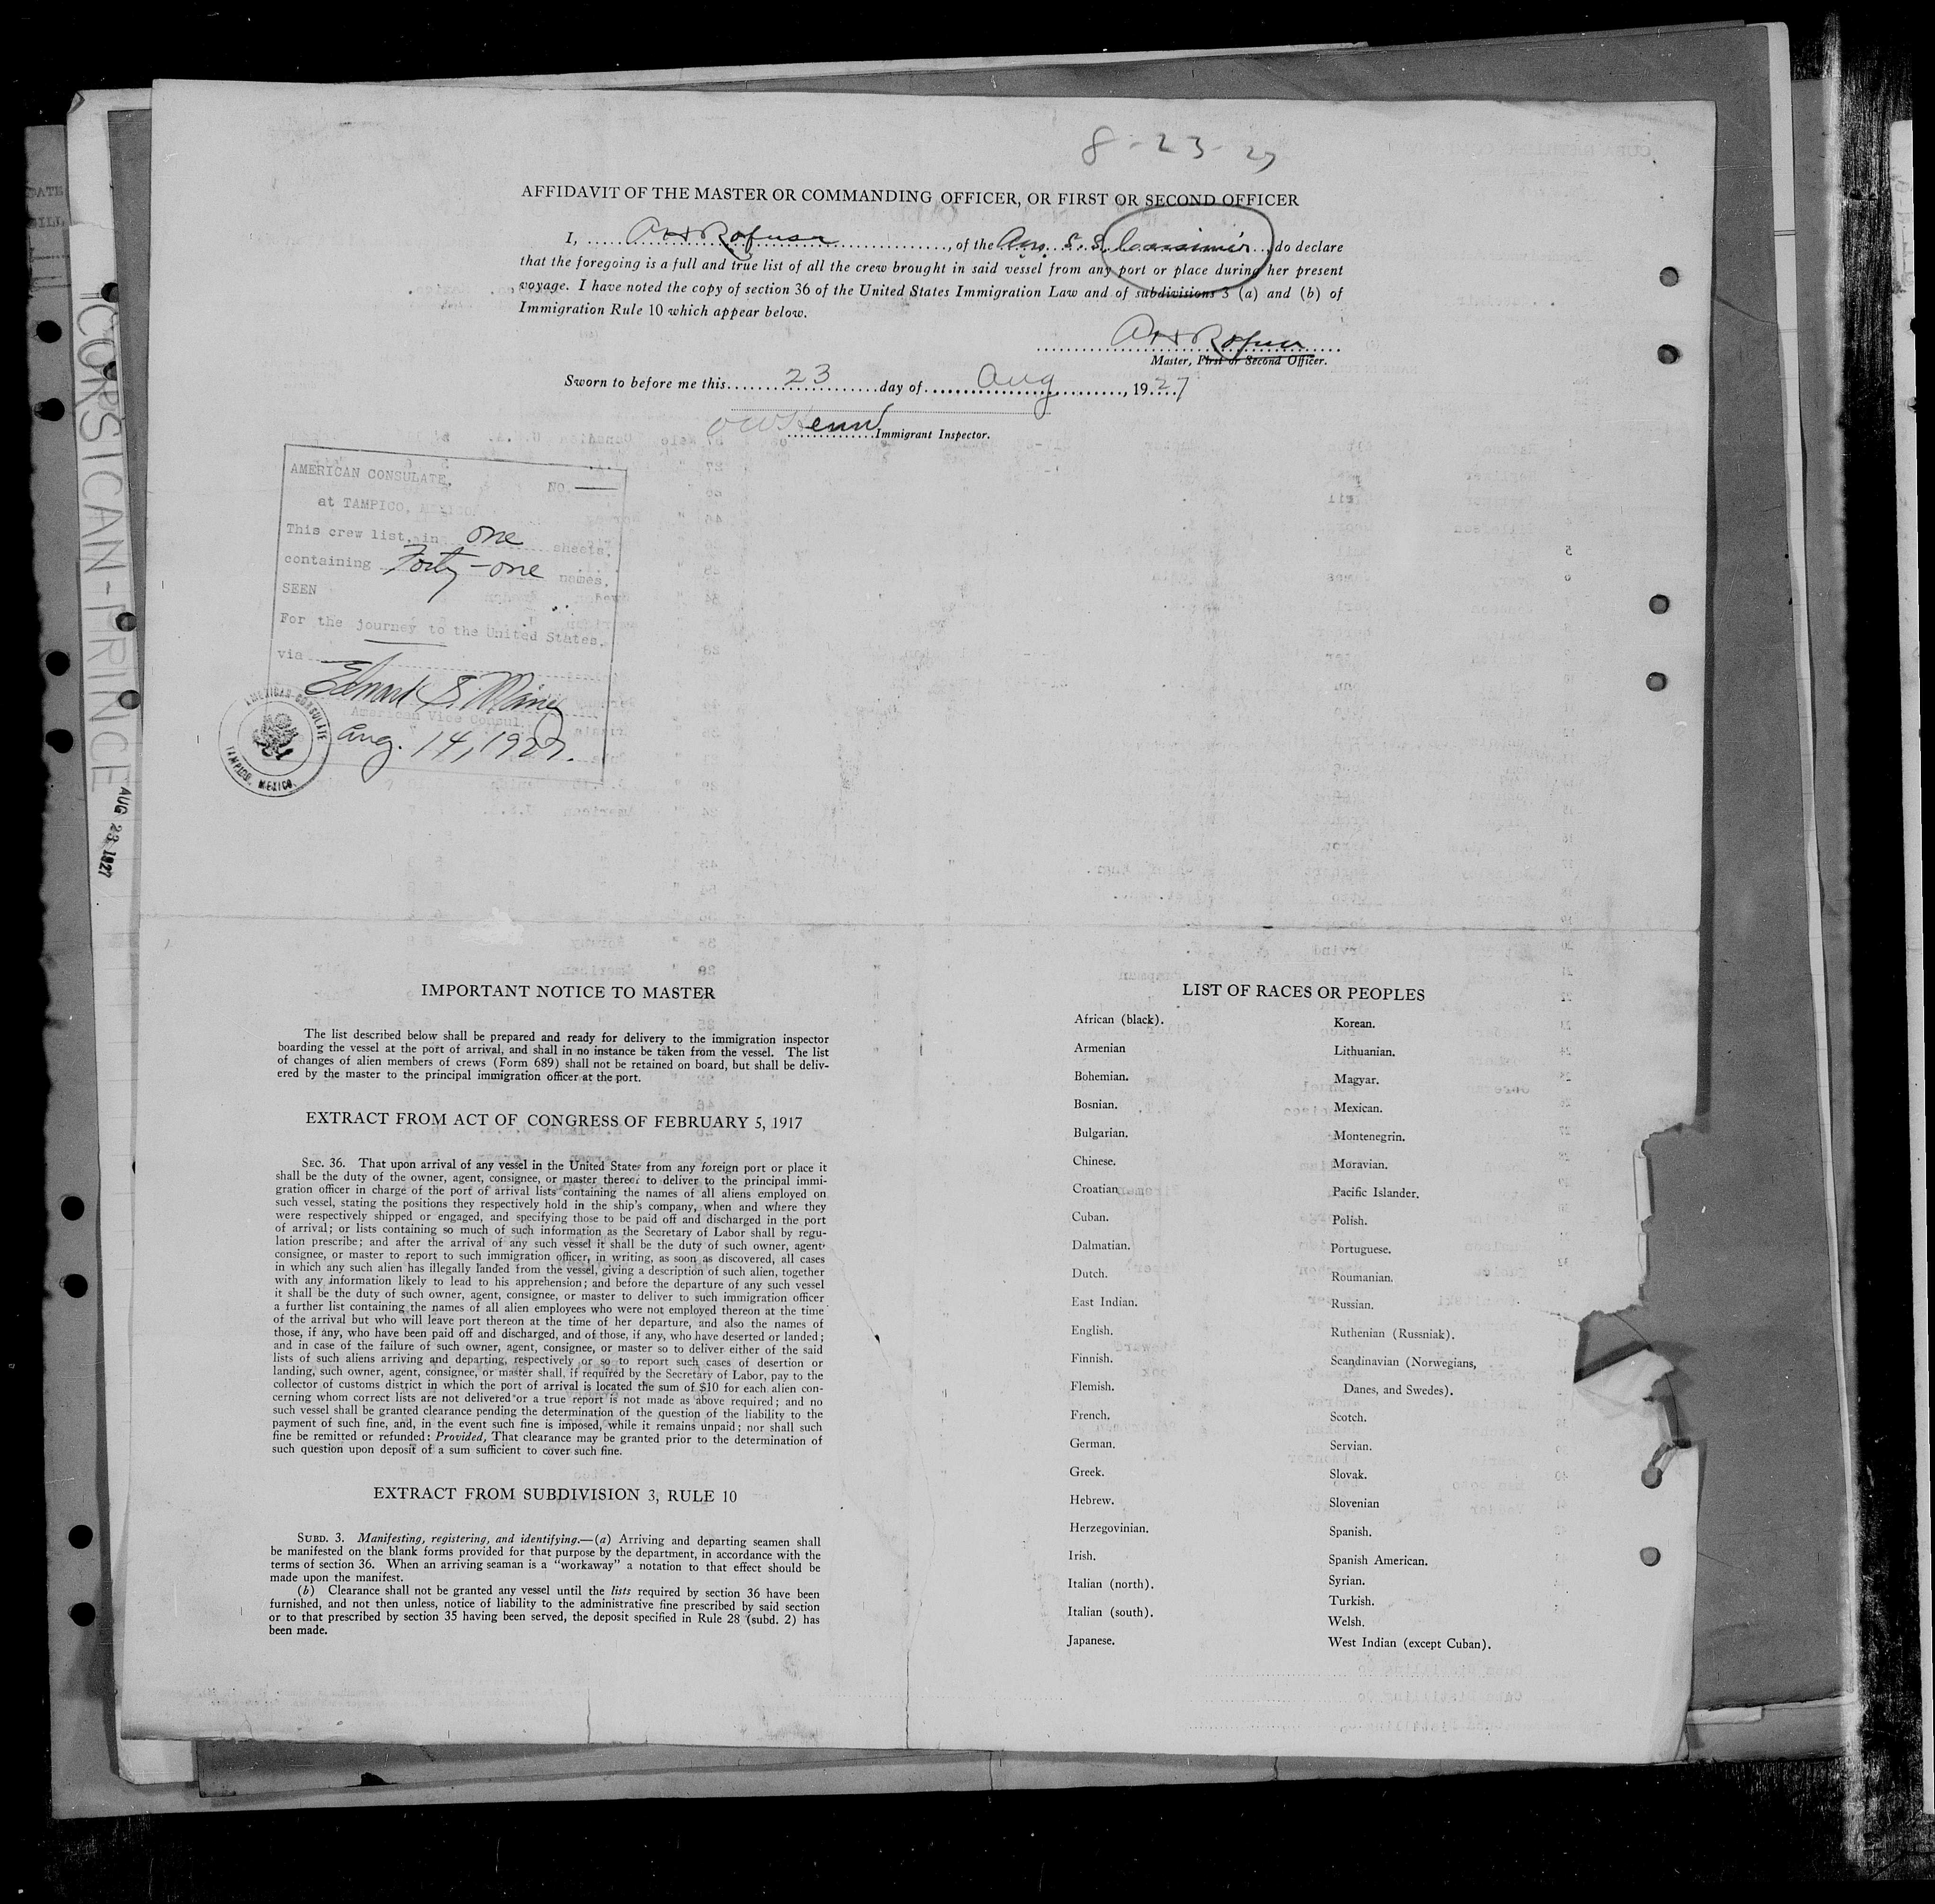 8-23-27
AFFIDAVIT OF THE MASTER OR COMMANDING OFFICER, OR FIRST OR SECOND OFFICER
I, ........, of the Am. S. S. Cassimir, do declare
that the foregoing is a full and true list of all the crew brought in said vessel from any port or place during her present
voyage. I have noted the copy of section 36 of the United States Immigration Law and of subdivisions 3 (a) and (b) of
Immigration Rule 10 which appear below.
Master, First or Second Officer.
Sworn to before me this 23 day of Aug, 1927
Immigrant Inspector.
AMERICAN CONSULATE, NO.
at TAMPICO, MEXICO
This crew list, in one sheets.
containing Forty-one names.
SEEN
For the journey to the United States.
via
American Vice Consul
Aug. 14, 1927.
AMERICAN CONSULATE
TAMPICO, MEXICO.
CORSICAN-PRINCE
AUG 23 1927
IMPORTANT NOTICE TO MASTER
The list described below shall be prepared and ready for delivery to the immigration inspector
boarding the vessel at the port of arrival, and shall in no instance be taken from the vessel. The list
of changes of alien members of crews (Form 689) shall not be retained on board, but shall be deliv-
ered by the master to the principal immigration officer at the port.
EXTRACT FROM ACT OF CONGRESS OF FEBRUARY 5, 1917
SEC. 36. That upon arrival of any vessel in the United States from any foreign port or place it
shall be the duty of the owner, agent, consignee, or master thereof to deliver to the principal immi-
gration officer in charge of the port of arrival lists containing the names of all aliens employed on
such vessel, stating the positions they respectively hold in the ship's company, when and where they
were respectively shipped or engaged, and specifying those to be paid off and discharged in the port
of arrival; or lists containing so much of such information as the Secretary of Labor shall by regu-
lation prescribe; and after the arrival of any such vessel it shall be the duty of such owner, agent,
consignee, or master to report to such immigration officer, in writing, as soon as discovered, all cases
in which any such alien has illegally landed from the vessel, giving a description of such alien, together
with any information likely to lead to his apprehension; and before the departure of any such vessel
it shall be the duty of such owner, agent, consignee, or master to deliver to such immigration officer
a further list containing the names of all alien employees who were not employed thereon at the time
of the arrival but who will leave port thereon at the time of her departure, and also the names of
those, if any, who have been paid off and discharged, and of those, if any, who have deserted or landed;
and in case of the failure of such owner, agent, consignee, or master so to deliver either of the said
lists of such aliens arriving and departing, respectively or so to report such cases of desertion or
landing, such owner, agent, consignee, or master shall, if required by the Secretary of Labor, pay to the
collector of customs district in which the port of arrival is located the sum of $10 for each alien con-
cerning whom correct lists are not delivered or a true report is not made as above required; and no
such vessel shall be granted clearance pending the determination of the question of the liability to the
payment of such fine, and, in the event such fine is imposed, while it remains unpaid; nor shall such
fine be remitted or refunded: Provided, That clearance may be granted prior to the determination of
such question upon deposit of a sum sufficient to cover such fine.
EXTRACT FROM SUBDIVISION 3, RULE 10
SUBD. 3. Manifesting, registering, and identifying.—(a) Arriving and departing seamen shall
be manifested on the blank forms provided for that purpose by the department, in accordance with the
terms of section 36. When an arriving seaman is a "workaway" a notation to that effect should be
made upon the manifest.
(b) Clearance shall not be granted any vessel until the lists required by section 36 have been
furnished, and not then unless, notice of liability to the administrative fine prescribed by said section
or to that prescribed by section 35 having been served, the deposit specified in Rule 28 (subd. 2) has
been made.
LIST OF RACES OR PEOPLES
African (black).
Armenian
Bohemian.
Bosnian.
Bulgarian.
Chinese.
Croatian
Cuban.
Dalmatian.
Dutch.
East Indian.
English.
Finnish.
Flemish.
French.
German.
Greek.
Hebrew.
Herzegovinian.
Irish.
Italian (north).
Italian (south).
Japanese.
Korean.
Lithuanian.
Magyar.
Mexican.
Montenegrin.
Moravian.
Pacific Islander.
Polish.
Portuguese.
Roumanian.
Russian.
Ruthenian (Russniak).
Scandinavian (Norwegians,
Danes, and Swedes).
Scotch.
Servian.
Slovak.
Slovenian
Spanish.
Spanish American.
Syrian.
Turkish.
Welsh.
West Indian (except Cuban).